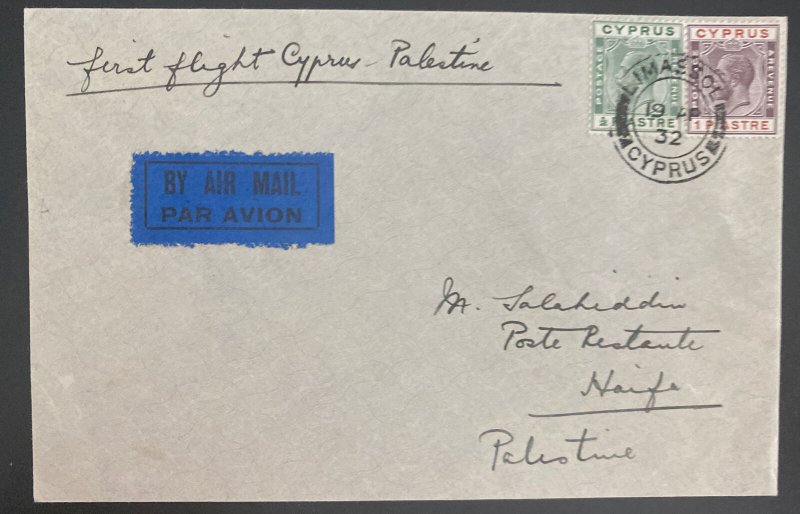 first flight Cyprus - Palestine
CYPRUS
POSTAGE
½ PIASTRE
CYPRUS
& REVENUE
1 PIASTRE
LIMASSOL
19 AP
32
CYPRUS
BY AIR MAIL
PAR AVION
M. Salaheddin
Poste Restante
Haifa
Palestine